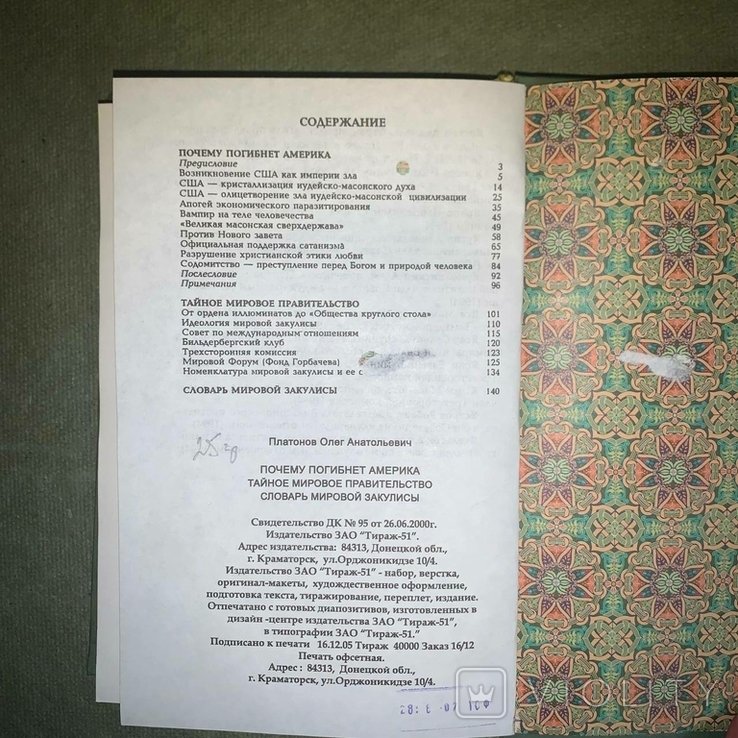 СОДЕРЖАНИЕ
ПОЧЕМУ ПОГИБНЕТ АМЕРИКА
Предисловие 3
Возникновение США как империи зла 5
США — кристаллизация иудейско-масонского духа 14
США — олицетворение зла иудейско-масонской цивилизации 25
Апогей экономического паразитирования 35
Вампир на теле человечества 45
«Великая масонская сверхдержава» 49
Против Нового завета 58
Официальная поддержка сатанизма 65
Разрушение христианской этики любви 77
Содомитство — преступление перед Богом и природой человека 84
Послесловие 92
Примечания 96
ТАЙНОЕ МИРОВОЕ ПРАВИТЕЛЬСТВО
От ордена иллюминатов до «Общества круглого стола» 101
Идеология мировой закулисы 110
Совет по международным отношениям 115
Бильдербергский клуб 120
Трехсторонняя комиссия 123
Мировой Форум (Фонд Горбачева) 125
Номенклатура мировой закулисы и ее с 134
СЛОВАРЬ МИРОВОЙ ЗАКУЛИСЫ 140
Платонов Олег Анатольевич
ПОЧЕМУ ПОГИБНЕТ АМЕРИКА
ТАЙНОЕ МИРОВОЕ ПРАВИТЕЛЬСТВО
СЛОВАРЬ МИРОВОЙ ЗАКУЛИСЫ
Свидетельство ДК № 95 от 26.06.2000г.
Издательство ЗАО "Тираж-51".
Адрес издательства: 84313, Донецкой обл.,
г. Краматорск, ул.Орджоникидзе 10/4.
Издательство ЗАО "Тираж-51" - набор, верстка,
оригинал-макеты, художественное оформление,
подготовка текста, тиражирование, переплет, издание.
Отпечатано с готовых диапозитивов, изготовленных в
дизайн -центре издательства ЗАО "Тираж-51",
в типографии ЗАО "Тираж-51."
Подписано к печати 16.12.05 Тираж 40000 Заказ 16/12
Печать офсетная.
Адрес : 84313, Донецкой обл.,
г. Краматорск, ул.Орджоникидзе 10/4.
VIOLITY